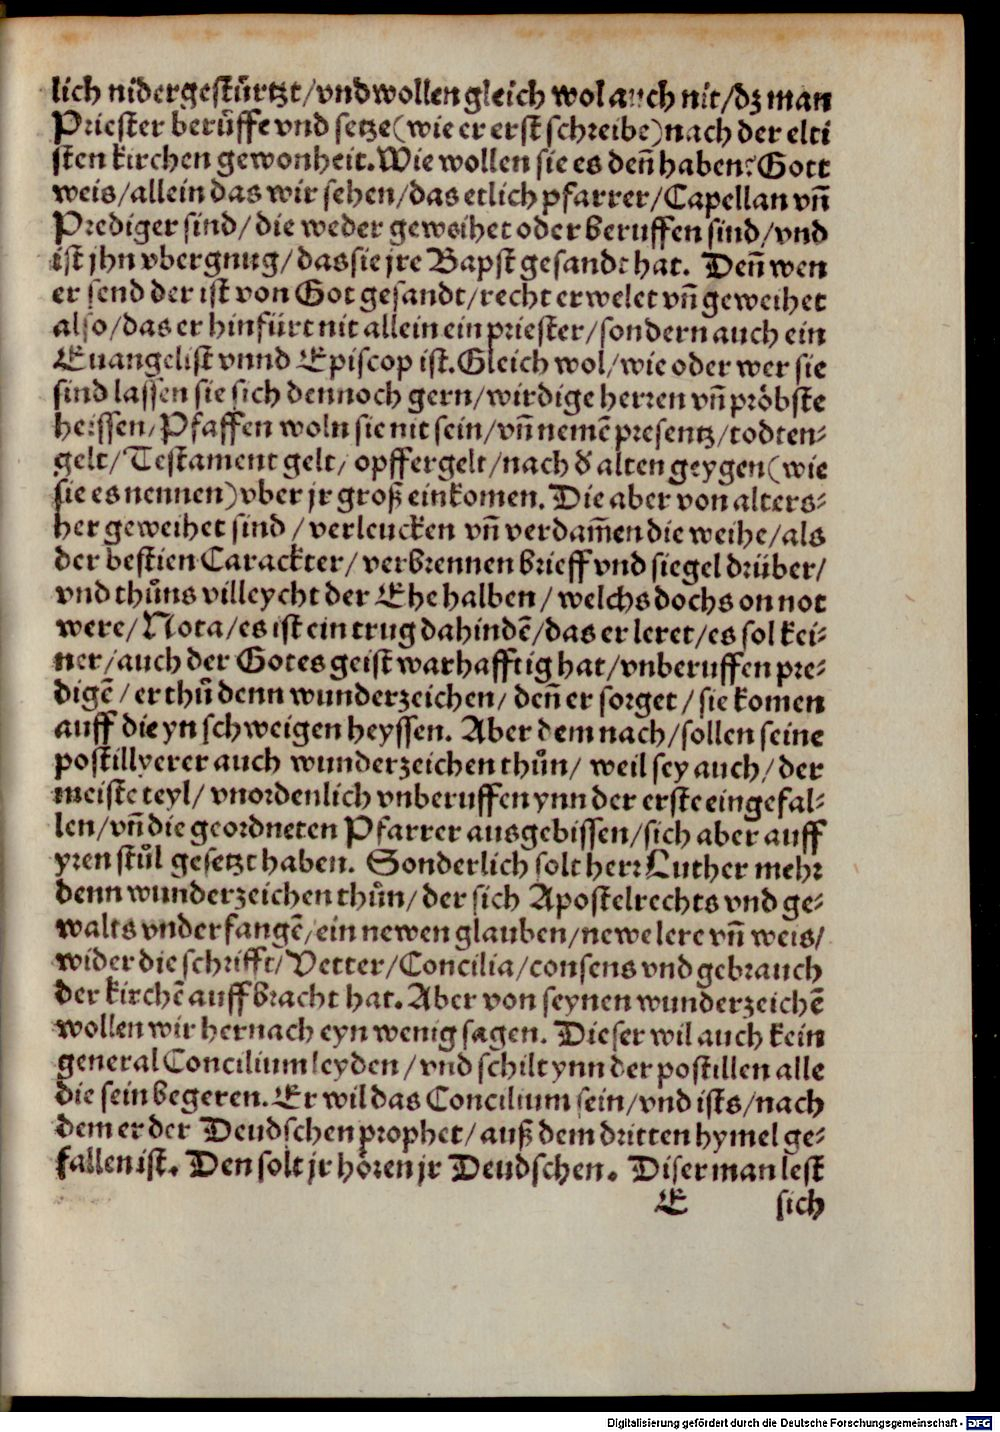 lich nidergestuͤrtzt/vnd wollen gleich wol auch nit/dz man
Priester beruͤffe vnd setze(wie er erst schreibe)nach der elti
sten kirchen gewonheit.Wie wollen sie es deñ haben? Gott
weis/allein das wir sehen/das etlich pfarrer/Capellan vñ
Prediger sind/die weder geweihet oder beruffen sind/vnd
ist jhn vbergnug/das sie jre Bapst gesandt hat. Deñ wen
er send der ist von Got gesandt/recht erwelet vñ geweihet
also/das er hinfürt nit allein ein priester/sondern auch ein
Euangelist vnnd Episcop ist.Gleich wol/wie oder wer sie
sind lassen sie sich dennoch gern/wirdige herren vñ pröbste
heissen/Pfaffen woln sie nit sein/vñ nemē presentz/todten-
gelt/Testament gelt/opffergelt/nach d̕ alten geygen(wie
sie es nennen)vber jr groß einkomen. Die aber von alters-
her geweihet sind/verleucken vñ verdam̄en die weihe/als
der bestien Carackter/verbrennen brieff vnd siegel drüber/
vnd thuͦns villeycht der Ehe halben/welchs dochs on not
were/Nota/es ist ein trug dahindē/das er leret/es sol kei-
ner/auch der Gotes geist warhafftig hat/vnberuffen pre-
digē/er thuͦ denn wunderzeichen/deñ er sorget/sie komen
auff die yn schweigen heyssen. Aber dem nach/sollen seine
postillyerer auch wunderzeichen thuͦn/weil sey auch/der
meiste teyl/vnordenlich vnberuffen ynn der erste eingefal-
len/vñ die geordneten Pfarrer ausgebissen/sich aber auff
yren stuͦl gesetzt haben. Sonderlich solt herr Luther mehr
denn wunderzeichen thuͦn/der sich Apostelrechts vnd ge-
walts vnderfangē/ein newen glauben/newe lere vñ weis/
wider die schrifft/Vetter/Concilia/consens vnd gebrauch
der kirchē auffbracht hat.Aber von seynen wunderzeichē
wollen wir hernach eyn wenig sagen. Dieser wil auch kein
general Concilium leyden/vnd schilt ynn der postillen alle
die sein begeren.Er wil das Concilium sein/vnd ists/nach
dem er der Deudschen prophet/auß dem dritten hymel ge-
fallen ist. Den solt jr hören jr Deudschen. Diser man lest
E sich
Digitalisierung gefördert durch die Deutsche Forschungsgemeinschaft - DFG